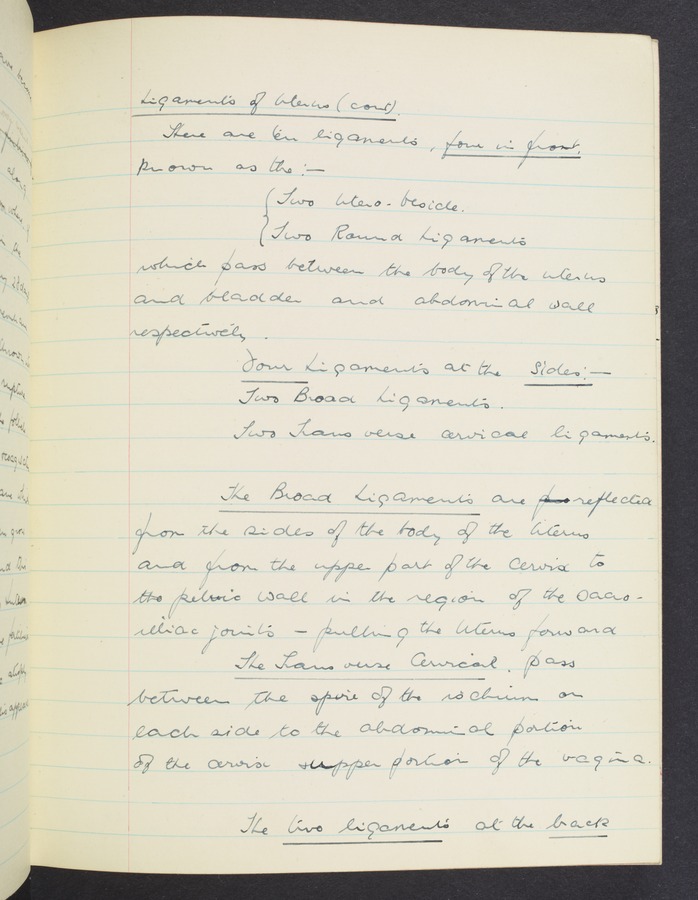 Ligaments of Uterus (cont).
There are ten ligaments, four in front,
known as the :—
Two Utero-besicle.
Two Round Ligaments
which pass between the body of the uterus
and bladder and abdominal wall
respectively.
Four Ligaments at the Sides:—
Two Broad Ligaments.
Two Transverse cervical ligaments.
The Broad Ligaments are reflected
from the sides of the body of the Uterus
and from the upper part of the Cervix to
the pelvic wall in the region of the Sacro-
illiac joints — pulling the Uterus forward
The Transverse Cervical. pass
between the spire of the ischium on
each side to the abdominal portion
of the cervix upper portion of the vagina.
The two ligaments at the back